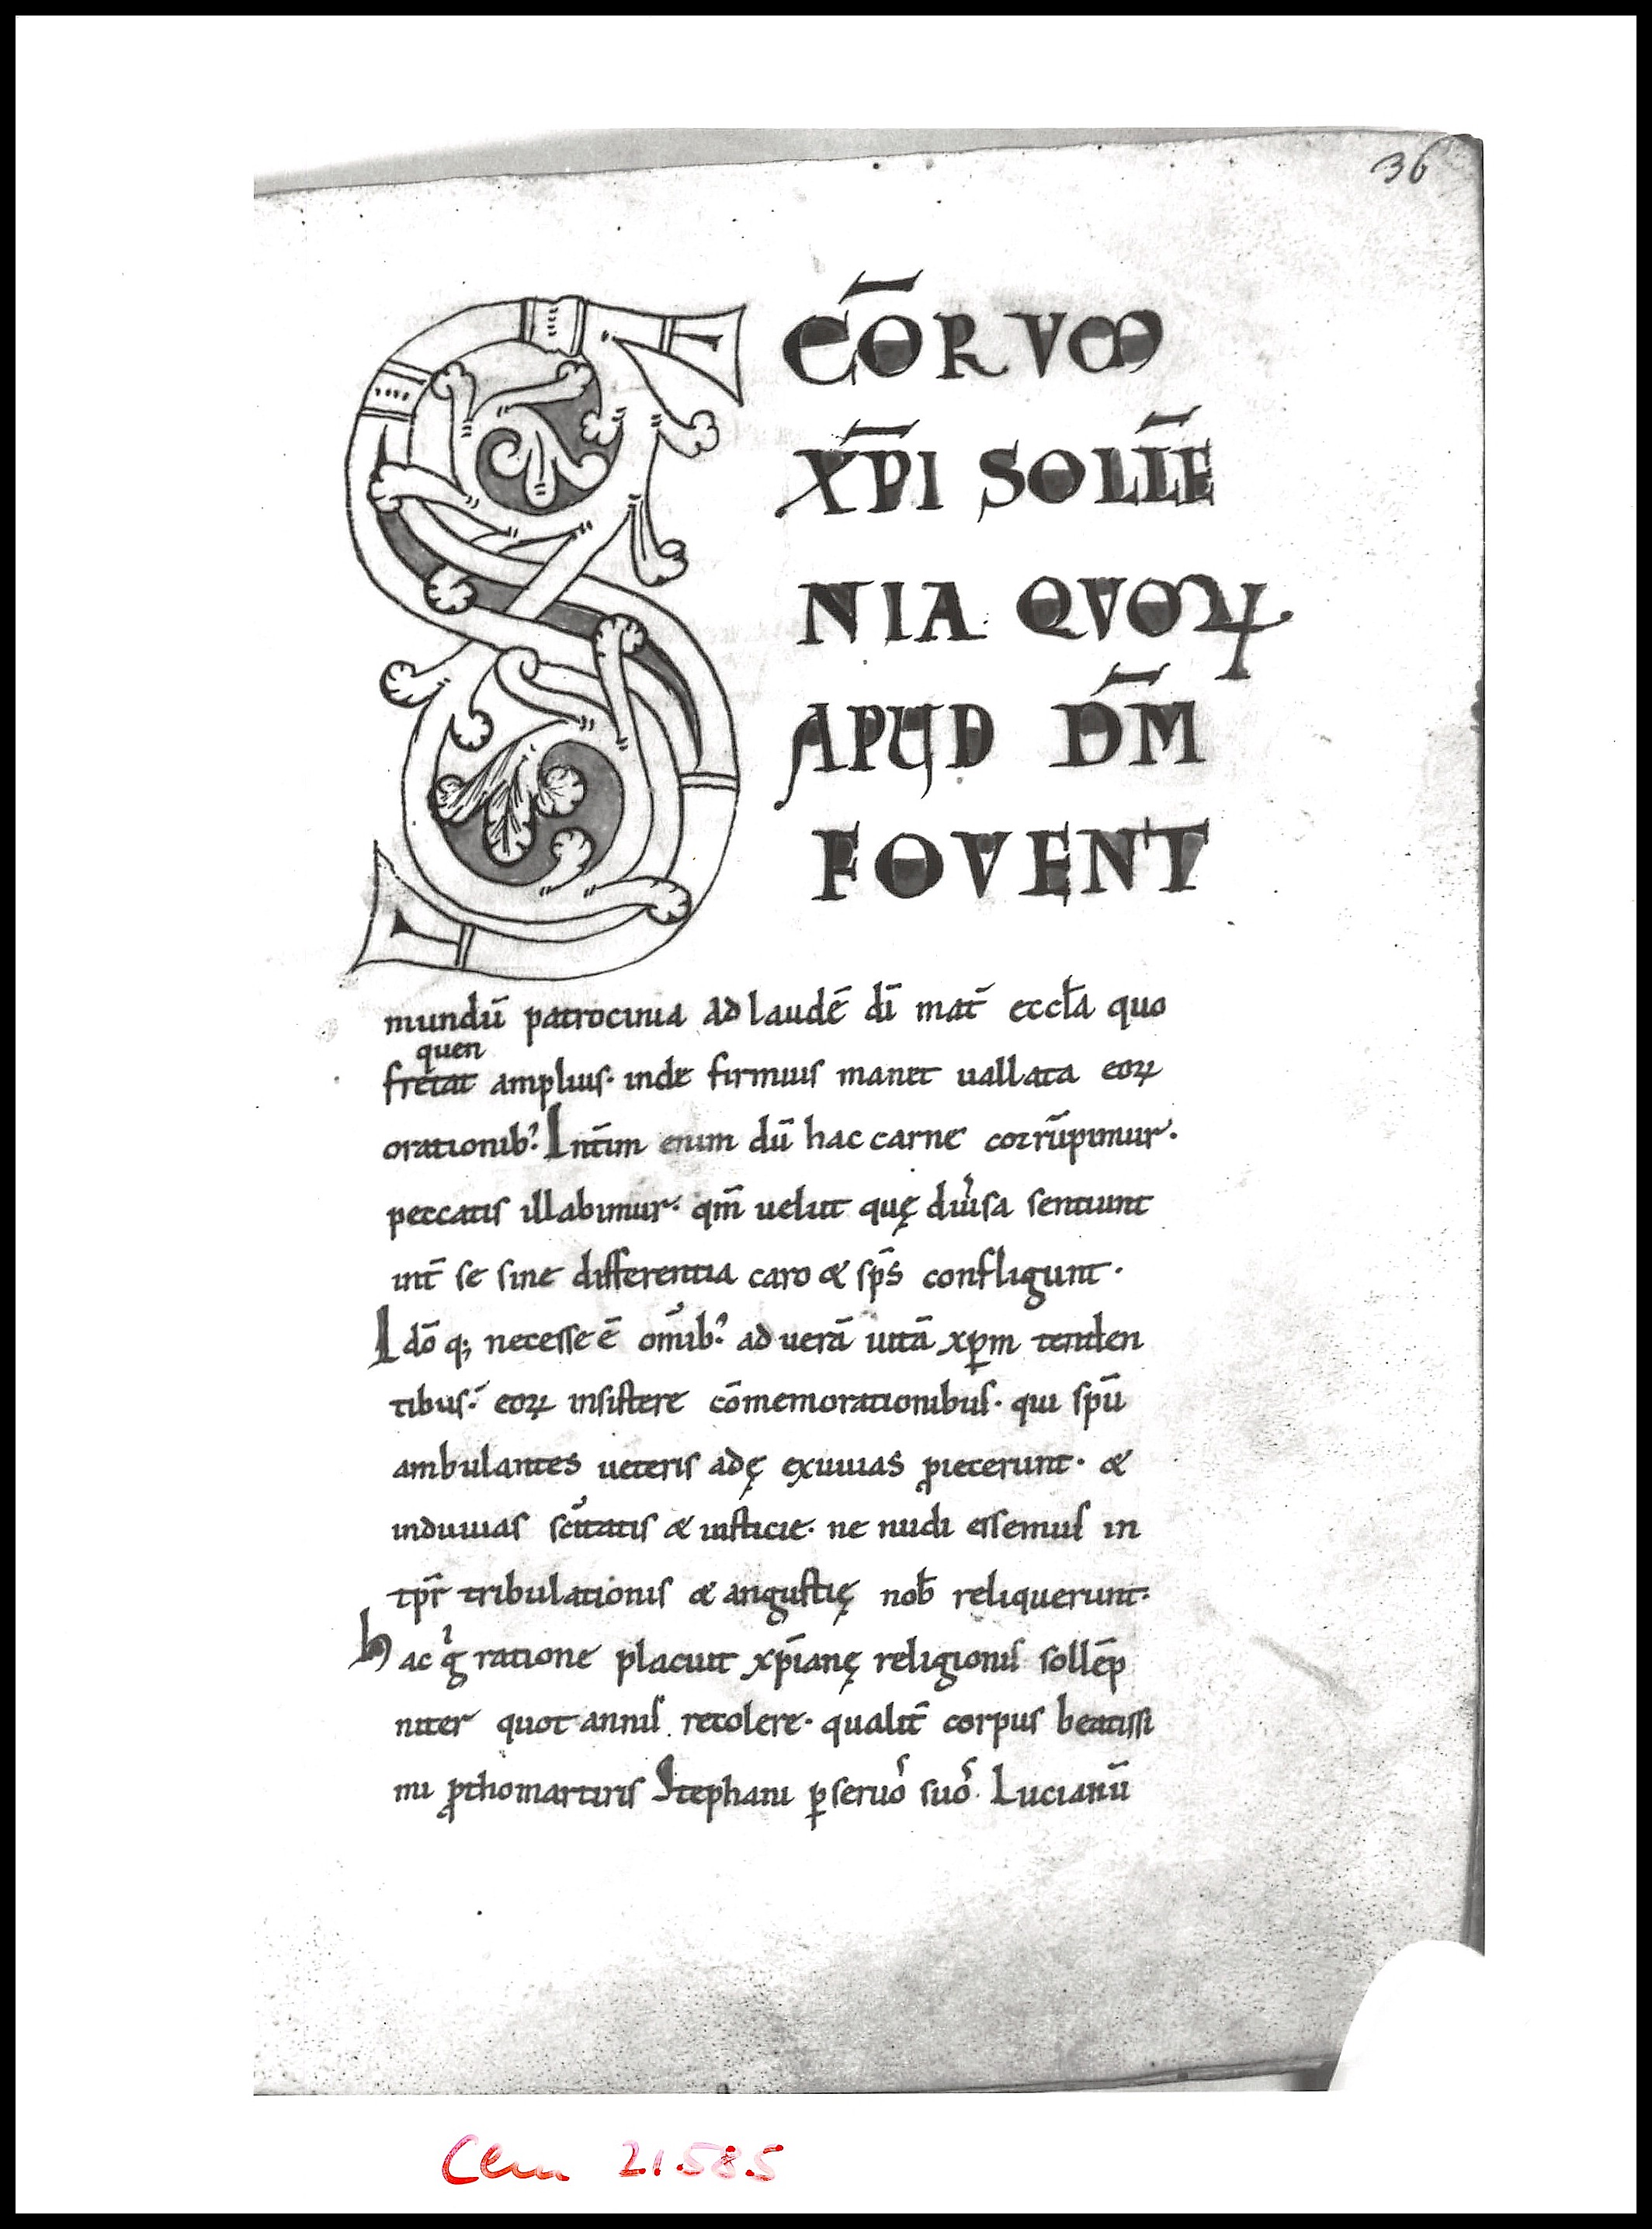 36
SCŌRVM
XP̄I SOLLĒ
NIA QVOꝜ
APUD DM̄
FOVENT
mundū patrocinia ad laudē dī mat̄ eccl̄a quo
quen
fretat amplius· inde firmius manet uallata eoꝝ
orationib᾽· Int̄im enim dū hac carne corrūpimur·
peccatis illabimur· qm̄ uelut quę diũsa sentiunt
int̄ se sine differentia caro & sp̄s confligunt·
Idō q; necesse ē om̄ib᾽ ad uerā uitā xp̄m tenden
tibus· eoꝝ insistere cōmemorationibus· qui sp̄u
ambulantes ueteris adę exuuias ꝓiecerunt· &
induuias sc̄itatis & iusticie· ne nudi essemus in
tp̄r tribulationis & angustię nob̄ reliquerunt·
hac gͥ ratione placuit xp̄ianę religionis sollēp
niter quot annis recolere· qualit̄ corpus beatissi
mi ꝓthomartiris Stephani ꝑ seruōs suōs Lucianū
Clm 21.585